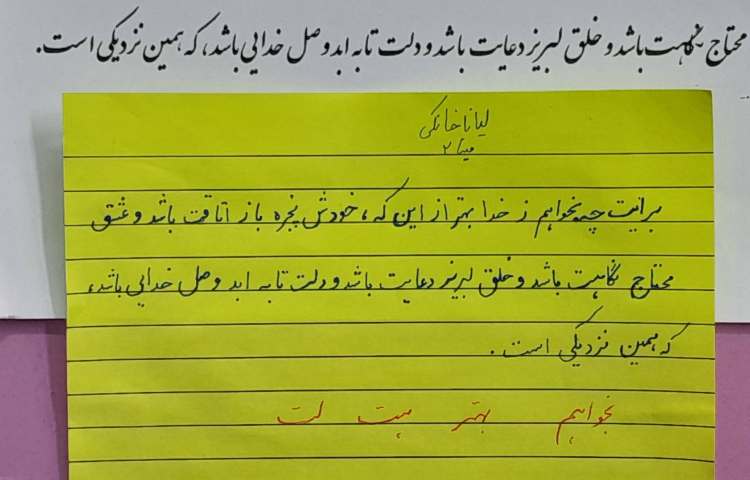 محتاج نگاهت باشد و خلق لبریز دعایت باشد و دلت تا به ابد وصل خدایی باشد، که همین نزدیکی است.
لیانا خانکی
مینا ۲
برایت چه بخواهم ز خدا بهتر از این که، خودش پنجره باز اتاقت باشد و عشق
محتاج نگاهت باشد و خلق لبریز دعایت باشد و دلت تا به ابد وصل خدایی باشد،
که همین نزدیکی است.
بخواهم بهتر هت لت